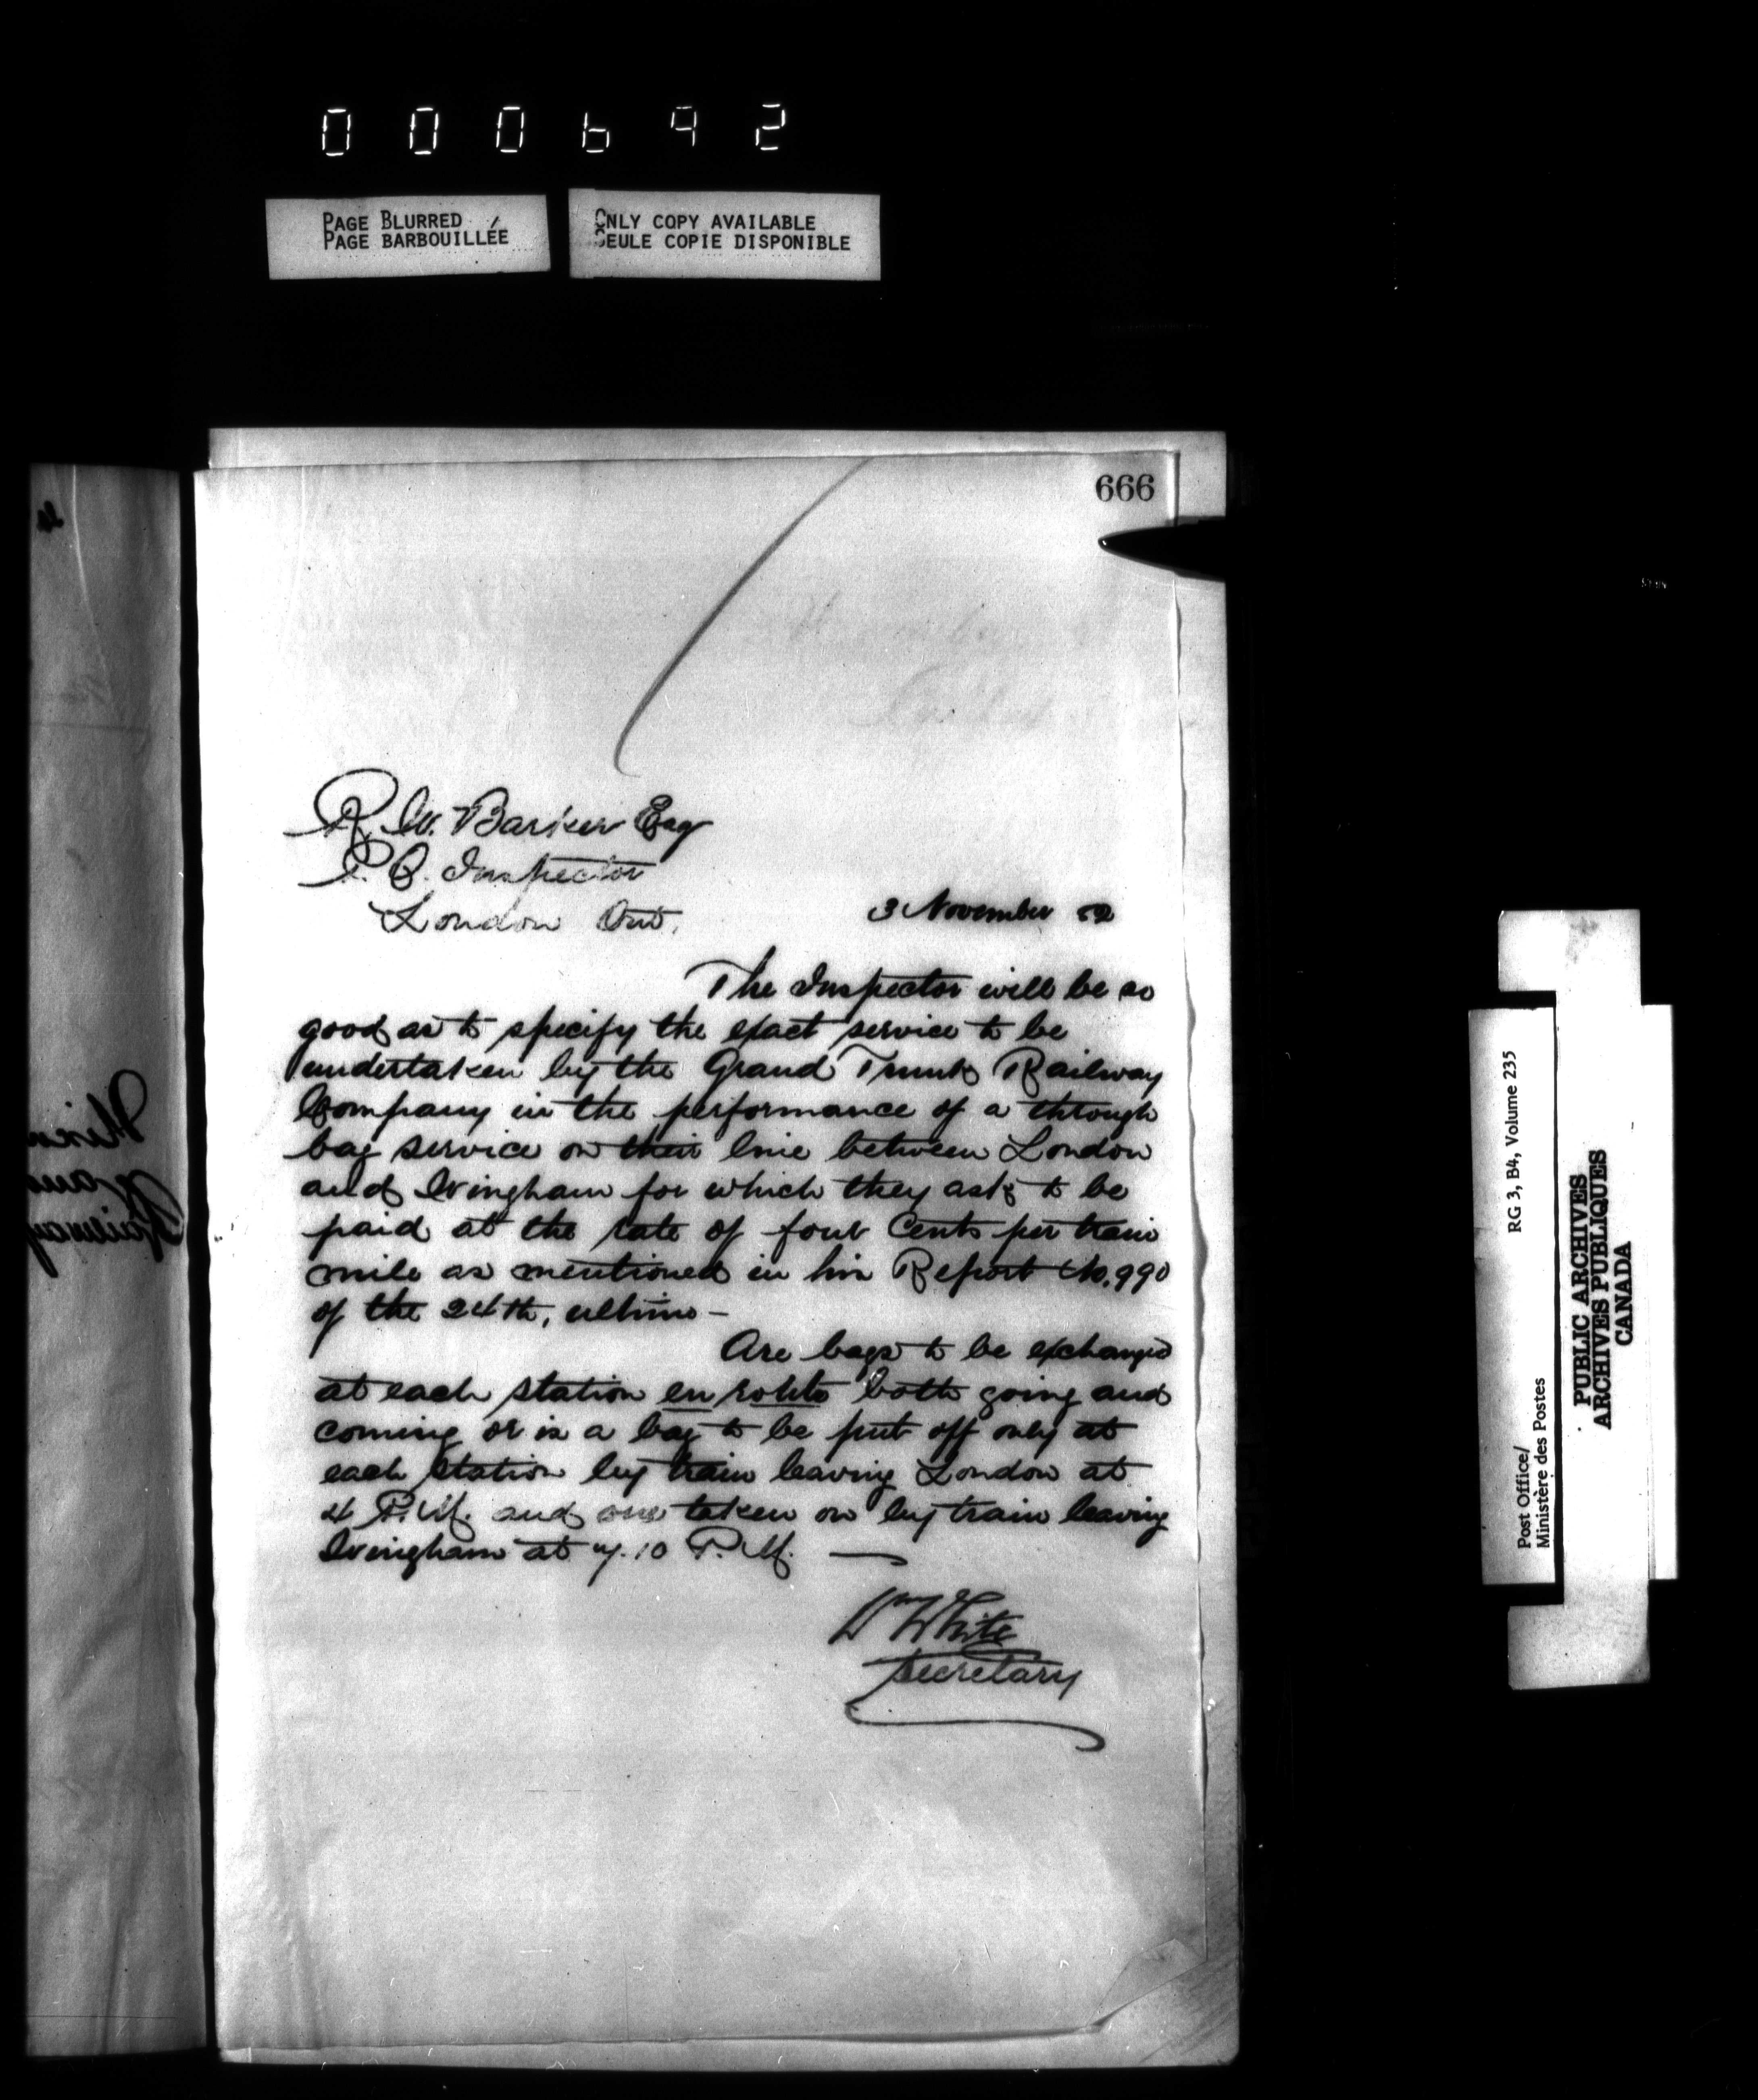 000692
PAGE BLURRED
PAGE BARBOUILLÉE
ONLY COPY AVAILABLE
SEULE COPIE DISPONIBLE
666
R. W. Barker Esq
P. O. Inspector
London Ont.
3 November 82
The Inspector will be so
good as to specify the exact service to be
undertaken by the Grand Trunk Railway
Company in the performance of a through
bag service on their line between London
and Wingham for which they ask to be
paid at the rate of four Cents per train
mile as mentioned in his Report No. 990
of the 24th, ultimo —
Are bags to be exchanged
at each station en route both going and
coming or is a bag to be put off only at
each station by train leaving London at
4 P.M. and one taken on by train leaving
Wingham at 7.10 P.M. —
Wm White
Secretary
Post Office/ RG 3, B4, Volume 235
Ministère des Postes
PUBLIC ARCHIVES
ARCHIVES PUBLIQUES
CANADA